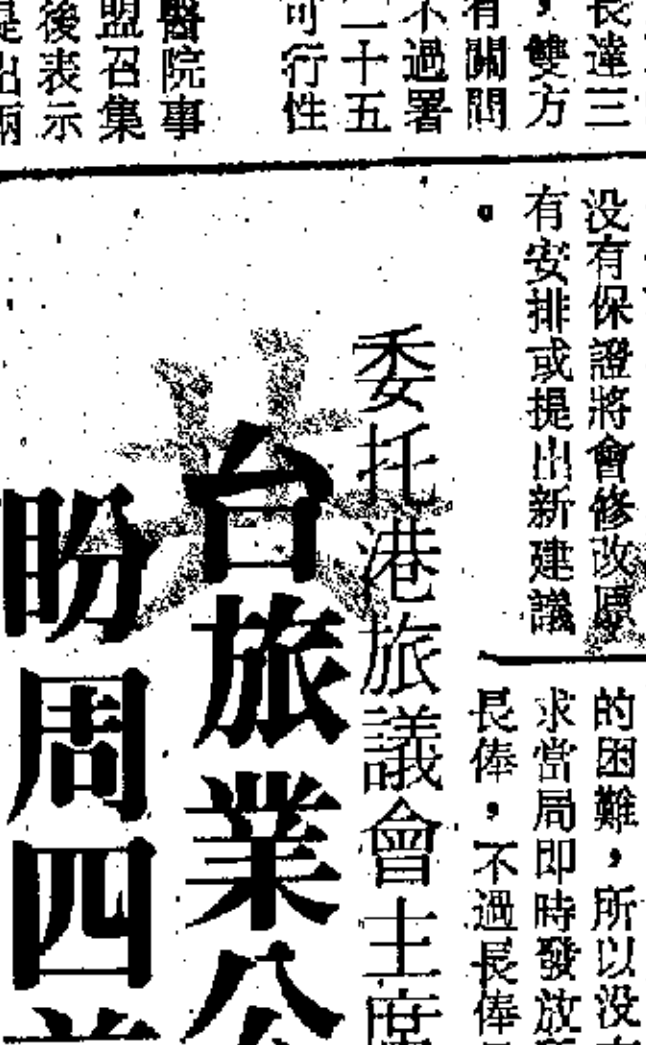 長達三
，雙方
有關問
不過署
二十五
可行性
醫院事
盟召集
後表示
提出兩
没有保證將會修改原
有安排或提出新建議
。
的困難，所以没
求當局即時發放
長俸，不過長俸
委托港旅議會主席
台旅業公
盼周四